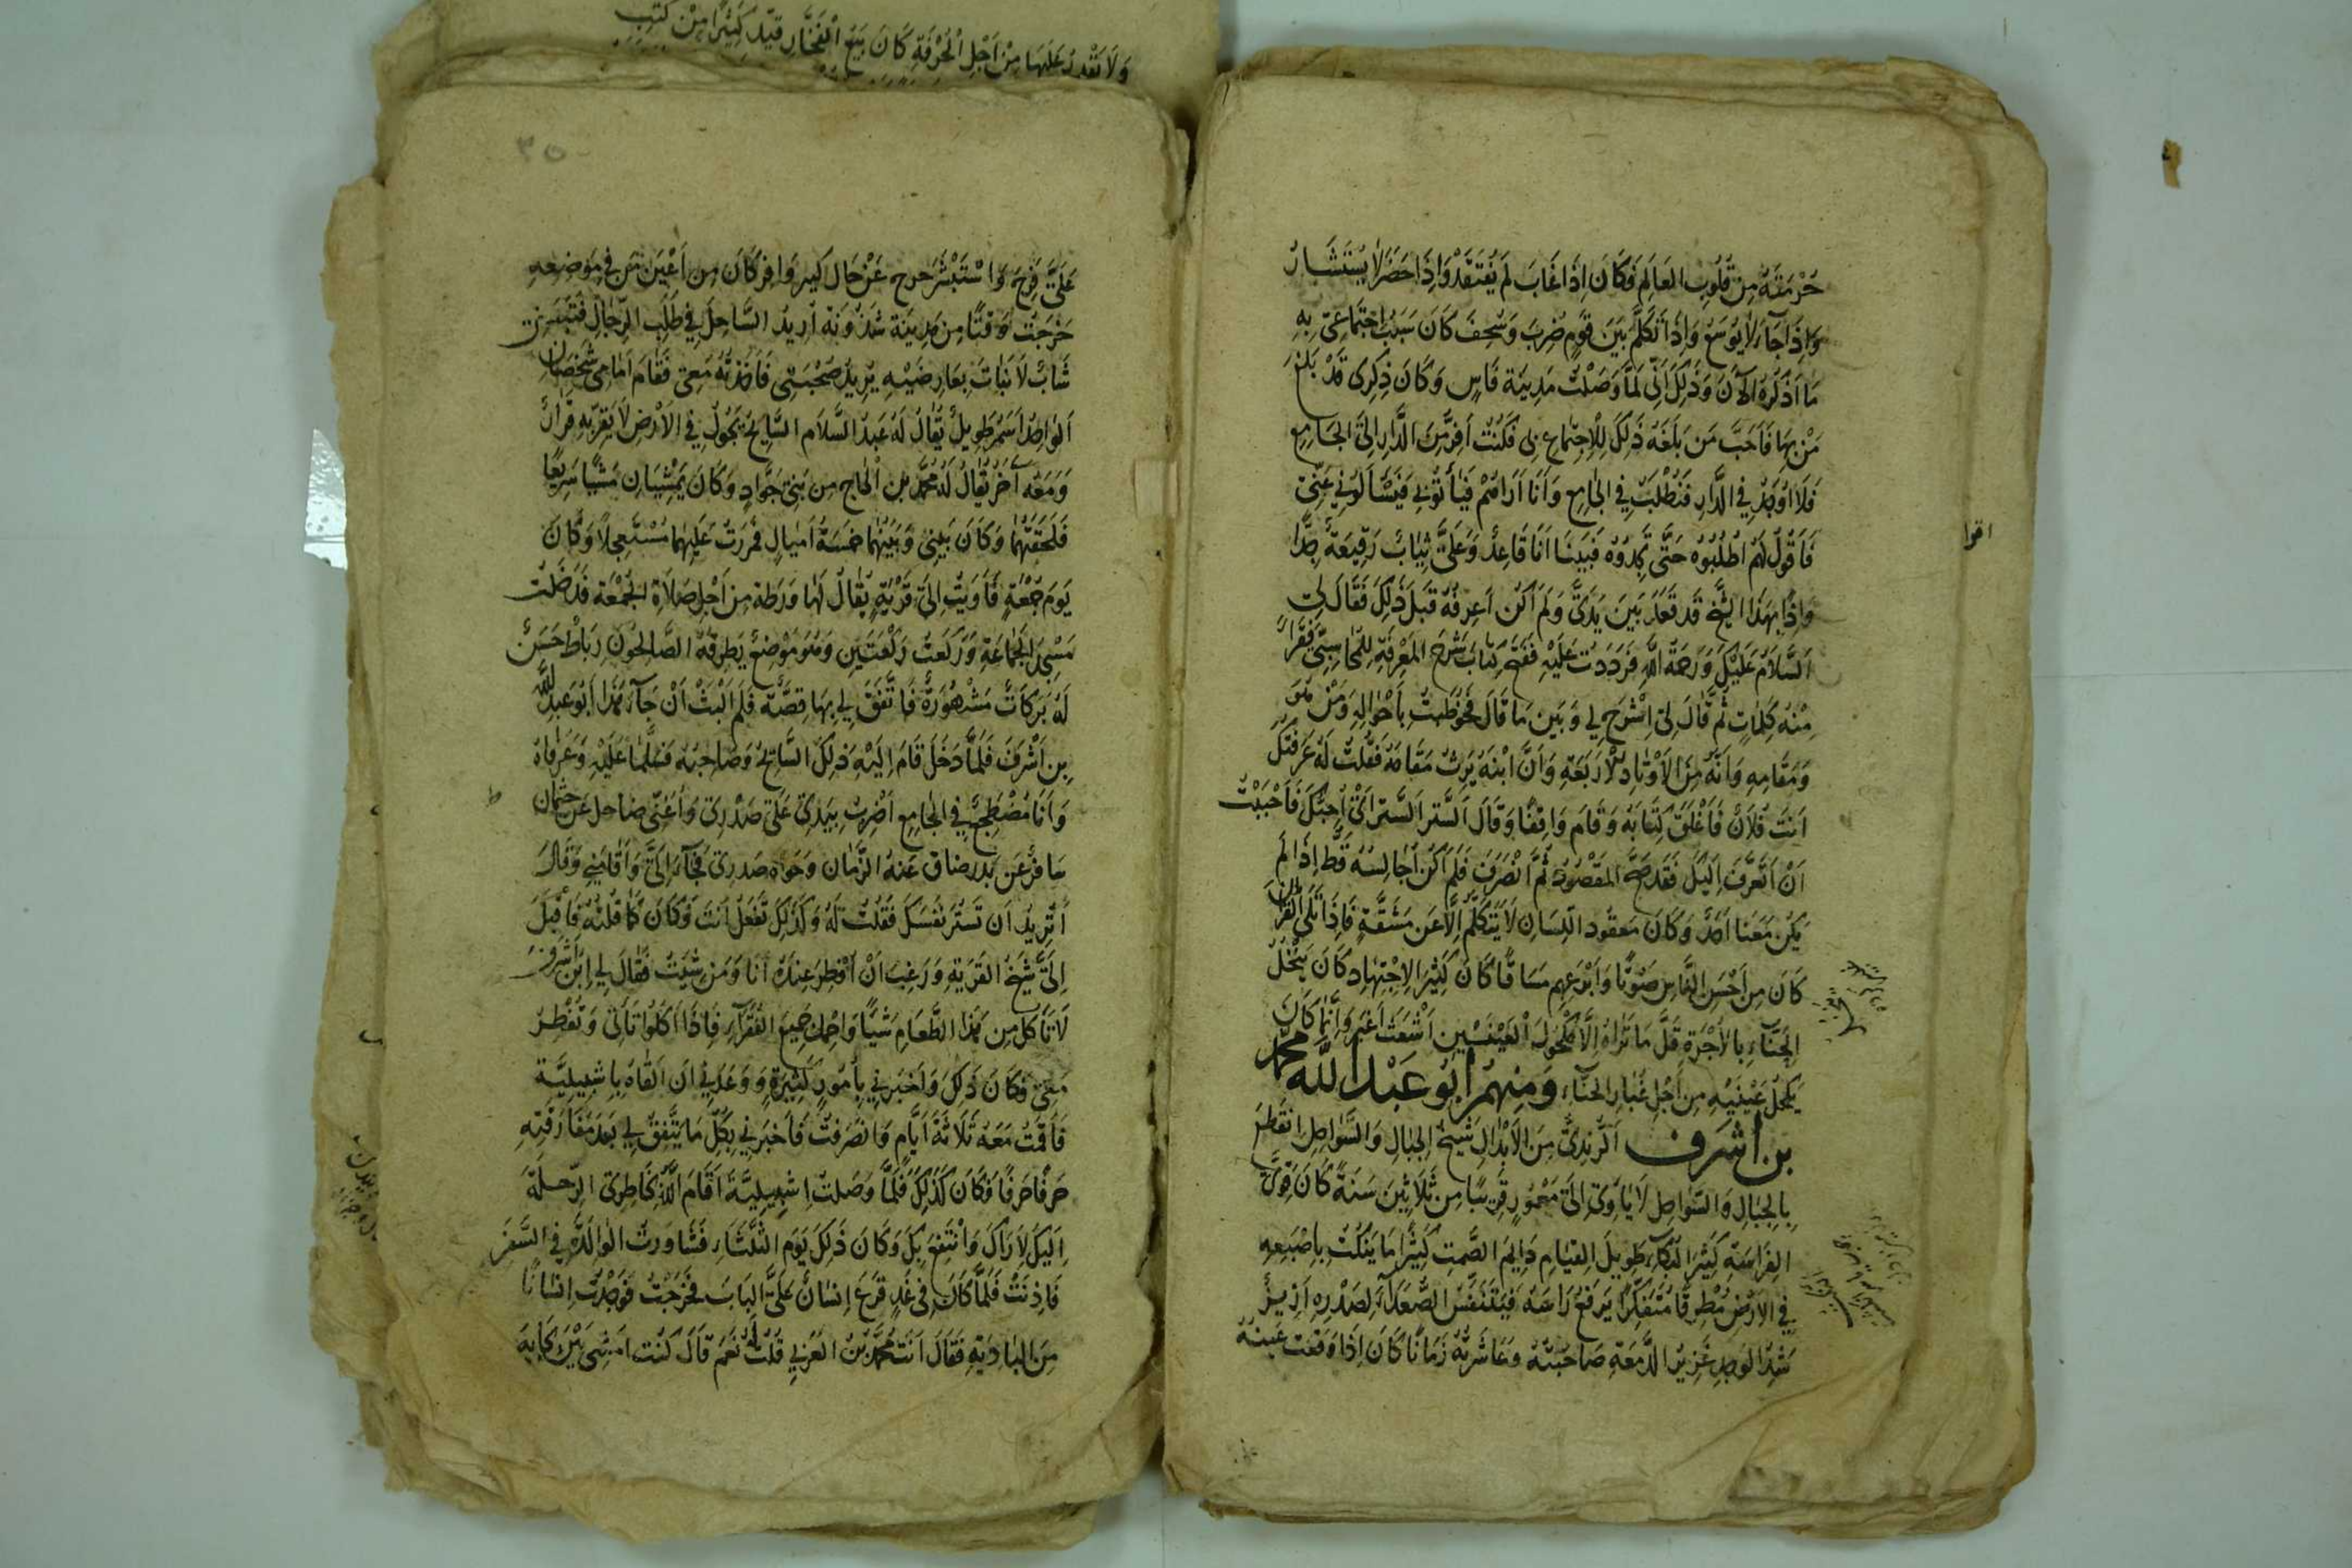 حُرْمَتَهُ مِن قُلُوبِ العَالَمِ فَكَانَ اِذَا غَابَ لَم يُفتَقَدْ وَاِذَا حَضَرَ لَا يُسْتَشَارُ
وَاِذَا جَآءَ لَا يُوسَعُ وَاِذَا تَكَلَّمَ بَيْنَ قَومٍ ضُرِبَ وَسُخِفَ كَانَ سَبَبُ اِجْتِمَاعِي بِهِ
مَا اَذْكُرُهُ الآنَ وَذَلِكَ اَنِّي لَمَّا وَصَلْتُ مَدِينَة فَاس وَكَانَ ذِكْرِى قَدْ بَلَغَ
مَنْ بِهَا فَاَحَبَّ مَن بَلَغَهُ ذَلِكَ لِلْاِجتِمَاعِ بِى فَكُنْتُ اَفِرُّ مِنَ الدَّارِ اِلَى الجَامِعِ
فَلَا اُوجَدُ فِي الدَّارِ فَنُطْلَبُ فِي الجَامِعِ وَاَنَا اَرَاهُمْ فَيَأتُونِي فَيَسْأَلُونِي عَنِّى
فَاَقُولُ لَهُم اطْلُبُوهُ حَتَّى تَجِدُوهُ فَبَينَا اَنَا قَاعِدٌ وَعَلَىَّ ثِيَابٌ رَفِيعَةٌ جِدًّا
وَاِذَا بِهَذَا الشَّيخ قَد قَعَدَ بَينَ يَدَىَّ وَلَم اَكُن اَعرِفُهُ قَبلَ ذَلِكَ فَقَالَ لِى
السَّلَامُ عَلَيْكَ وَرَحمَةُ اللهِ فَرَدَدتُ عَلَيْهِ فَفَتَحَ كِتَابَ شَرْحَ المَعْرِفَةِ لِلمُحَاسِبِيّ فَقَرَأَ
مِنْهُ كَلِمَاتٍ ثُمَّ قَالَ لِى اشْرَحْ لِي وَبَيِّن مَا قَالَ فَخُوطِبتُ بِاَحْوَالِهِ وَمَنْ هُوَ
وَمَقَامِهِ وَاَنَّهُ مِنَ الاَوْتَادِ الْاَرْبَعَةِ وَاَنَّ ابْنَهُ يَرِثُ مَقَامَهُ فَقُلْتُ لَهُ عَرَفتُكَ
اَنتَ فُلَانٌ فَاَغْلَقَ كِتَابَهُ وَقَامَ وَاقِفًا وَقَالَ السَّترَ السَّترَ اِنِّي اُحِبُّكَ فَاَحْبَبْتُ
اَنْ اَتَعَرَّفَ اِلَيْكَ فَقَد صَحَّ المَقْصُودُ ثُمَّ انْصَرَفَ فَلَم اَكُن اُجَالِسُهُ قَطُّ اِذَا لَم
يَكُن مَعَنَا اَحَدٌ وَكَانَ مَعقُودَ اللِّسَانِ لَا يَتَكَلَّمُ اِلَّا عَن مَشَقَّةٍ فَاِذَا تَلَى القُرْاٰنَ
كَانَ مِن اَحْسَنِ النَّاسِ صَوْتًا وَاَبْرَعِهِم مَسَاقًا كَانَ كَثِيرَ الاِجْتِهَادِ كَانَ يَنْخُلُ
الحِنَّآءَ بِالاُجْرَةِ قَلَّ مَا تَرَاهُ اِلَّا مَكْحُولَ العَيْنَيْنِ اَشْعَثَ اَغبَرَ وَاِنَّمَا كَانَ
يَكْحلُ عَيْنَيْهِ مِن اَجْلِ غُبَارِ الحِنَّاءِ وَمِنهُم أبُو عَبْد الله مُحَمَّد
بن أشرَف الرُّندِىّ مِنَ الاَبْدَالِ شَيخُ الجِبَالِ وَالسَّوَاحِلِ انقَطَعَ
بِالجِبَالِ وَالسَّوَاحِل لَا يَاْوِى اِلَى مَعْمُورٍ قَرِيبًا مِن ثَلَاثِينَ سَنَة كَانَ قَوِىَّ
الفِرَاسَةِ كَثِيرَ البُكَآءِ طَوِيلَ القِيَامِ دَايِمَ الصَّمتِ كَثِيرًا مَا يَنْكُتُ بِاِصْبَعِهِ
فِي الاَرْضِ مُطْرِقًا مُتَفَكِّرًا يَرفَعُ رَاسَهُ فَيَتَنَفَّسُ الصُّعَدَآءَ لِصَدْرِهِ اَزِيزٌ
شَدِيدَ الوَجدِ غَزِيرَ الدَّمعَةِ صَاحَبتُهُ وَعَاشَرتُهُ زَمَانًا كَانَ اِذَا وَقَعَت عَينُهُ
اقوا
وَلَا تَقْدِرُ عَلَيهَا مِنْ اَجْلِ الحُرْقَةِ كَانَ يَبِيعُ الفَخَّارِ قَيَّدَ كَثِيرًا مِنْ كُتُبِ
٣٥
عَلَىَّ فَرِحَ وَاسْتَبْشَرَ خرج عَنْ حَال كَبِيرٍ وَافِرٍ كَانَ مِن اَعْيَنِ مَن فِي مَوضِعِهِ
خَرَجْتُ وَقتًا مِن مَدِينَة شَذُونَة اُرِيدُ السَّاحِلَ فِي طَلَبِ الرِّجَالِ فَتَبَعَنِى
شَابٌّ لَا نَبَاتَ بِعَارِضَيْهِ يُرِيدُ صُحْبَتِى فَاَخَذتُهُ مَعِى فَقَامَ اَمَامِى شَخصَانِ
الوَاحِدُ اَسمَرُ طَوِيلٌ يُقَالُ لَهُ عَبدُ السَّلَام السَّايِحُ يَجُولُ فِي الاَرْضِ لَا يَقَرُّ بِهِ قَرَارٌ
وَمَعَهُ آخَرُ يُقَالُ لَهُ مُحَمَّد بن الحَاج مِن بَنِى جَوَّادٍ وَكَانَ يَمْشِيَانِ مَشْيًا سَرِيعًا
فَلَحَقتُهُمَا وَكَانَ بَينِى وَبَيْنَهُمَا خَمسَةُ اَميَالٍ فَمَررتُ عَلَيهِمَا مُسْتَعجِلًا وَكَانَ
يَومَ جُمْعَةٍ فَاَوَيتُ اِلَى قَرْيَةٍ يُقَالُ لَهَا وَرَطة مِن اَجْلِ صَلَاةِ الجُمعَةِ فَدَخَلتُ
مَسْجِدَ الجَمَاعَةِ وَرَكَعتُ رَكعَتَينِ وَهُوَ مَوضِعٌ يَطرقهُ الصَّالِحُونَ رِبَاطٌ حَسَنٌ
لَهُ بَرَكَاتٌ مَشْهُورَةٌ فَاتَّفَقَ لِي بِهَا قِصَّةٌ فَلَم اَلْبَثْ اَنْ جَآءَ هَذَا اَبُو عَبدِ اللهِ
بن اَشْرَفَ فَلَمَّا دَخَلَ قَامَ اِلَيْهِ ذَلِكَ السَّايِحُ وَصَاحِبُهُ فَسَلَّمَا عَلَيْهِ وَعَرَفَاهُ
وَاَنَا مُضْطَجِعٌ فِي الجَامِعِ اَضْرِبُ بِيَدِى عَلَى صَدْرِى وَاُغَنِّى ضاحك عَن جُمَان
سَافِرٌ عَن بَدر ضَاقَ عَنهُ الزَّمَان وَحَوَاه صَدرِى فَجَآءَ اِلَىَّ وَاَقَامَنِي وَقَالَ
أتُرِيدُ اَن تَستُرَ نَفسَكَ فَقُلتُ لَهُ وَكَذَلِكَ تَفعَلُ اَنتَ وَكَانَ كَمَا قُلتُهُ فَاَقبَلَ
اِلَىَّ شَيخُ القَريَةِ وَرَغِبَ اَنْ اَفْطِرَ عِندَهُ اَنا وَمَن شِئتُ فَقَالَ لِي ابن اَشرَف
لَا تَأكُل مِن هَذا الطَّعَامِ شَيئًا وَاحمِل جَمِيعَ الفُقَرَاءِ فَاِذَا اَكَلُوا تَأتِى وَتُفْطِرُ
مَعِى فَكَانَ ذَلِكَ وَاَخبَرَنِي بِأُمُورٍ كَثِيرَةٍ وَوَعَدَنِي اَن اَلقَاهُ بِاِشبِيلِيَّة
فَاَقَمْتُ مَعَهُ ثَلَاثَةَ اَيَّامٍ وَانصَرَفتُ فَاَخبَرَنِي بِكُلِّ مَا يَتَّفِقُ لِي بَعدَ مُفَارَقَتِهِ
حَرفًا حَرفًا وَكَانَ كَذَلِكَ فَلَمَّا وَصَلتُ اِشبِيلِيَّة اَقَامَ اللهُ بِخَاطِرِى الرِّحلَةَ
اِلَيكَ لِاَرَاكَ وَانتَفِعُ بِكَ وَكَانَ ذَلِكَ يَومَ الثُّلثَاءِ فَشَاوَرتُ الوَالِدَةَ فِي السَّفَرِ
فَاَذِنَتْ فَلَمَّا كَانَ فِي غَدٍ قَرَعَ اِنسَانٌ عَلَىَّ البَابَ فَخَرَجْتُ فَوَجَدْتُ اِنسَانًا
مِنَ البَادِيَةِ فَقَالَ اَنتَ مُحَمَّد بْنُ العَرَبِي قُلْتُ لَهُ نَعَم قَالَ كُنْتُ اَمشِى بَيْنَ